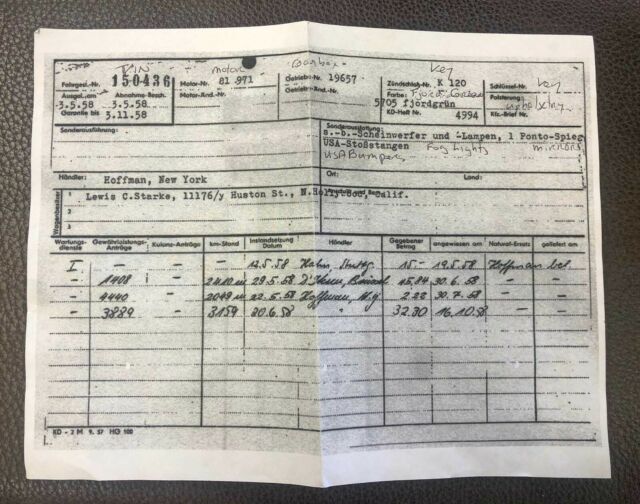 VIN motor Gearbox Key Key
Fahrgest.-Nr. 150436 Motor-Nr. 81 971 Getriebe-Nr. 19657 Zündschloß-Nr. K 120 Schlüssel-Nr.
Ausgel. am Abnahme-Besch. Motor-Änd.-Nr. Getriebe-Änd.-Nr. Farbe: Fjord Green Polsterung: upholstery
3.5.58 3.5.58 5705 fjordgrün
Garantie bis 3.11.58 KD-Heft Nr. 4994 Kfz.-Brief Nr.
Sonderausführung: Sonderausstattung:
s.-b.-Scheinwerfer und -Lampen, 1 Ponto-Spieg
USA-Stoßstangen Fog Lights mirrors
USA Bumpers
Händler: Hoffman, New York Ort: Land:
Wagenbesitzer 1 Lewis C.Starke, 11176/y Huston St., N.Hollywood, Calif.
2
3
Wartungsdienste Gewährleistungs-Anträge Kulanz-Anträge km-Stand Instandsetzung Datum Händler Gegebener Betrag angewiesen am Natural-Ersatz geliefert am
I. — — — 12.5.58 Hahn, Stuttg. 15.- 19.5.58 Hoffman bel
- 1408 - 2410 m 29.5.58 45,84 30.6.58 - -
- 4440 - 2049 m 22.5.58 Hoffman, N.Y. 2.28 30.7.58 - -
- 3889 - 3159 20.6.58 " 32.30 16.10.58 - -
KD - 2 M 9. 57 HG 100